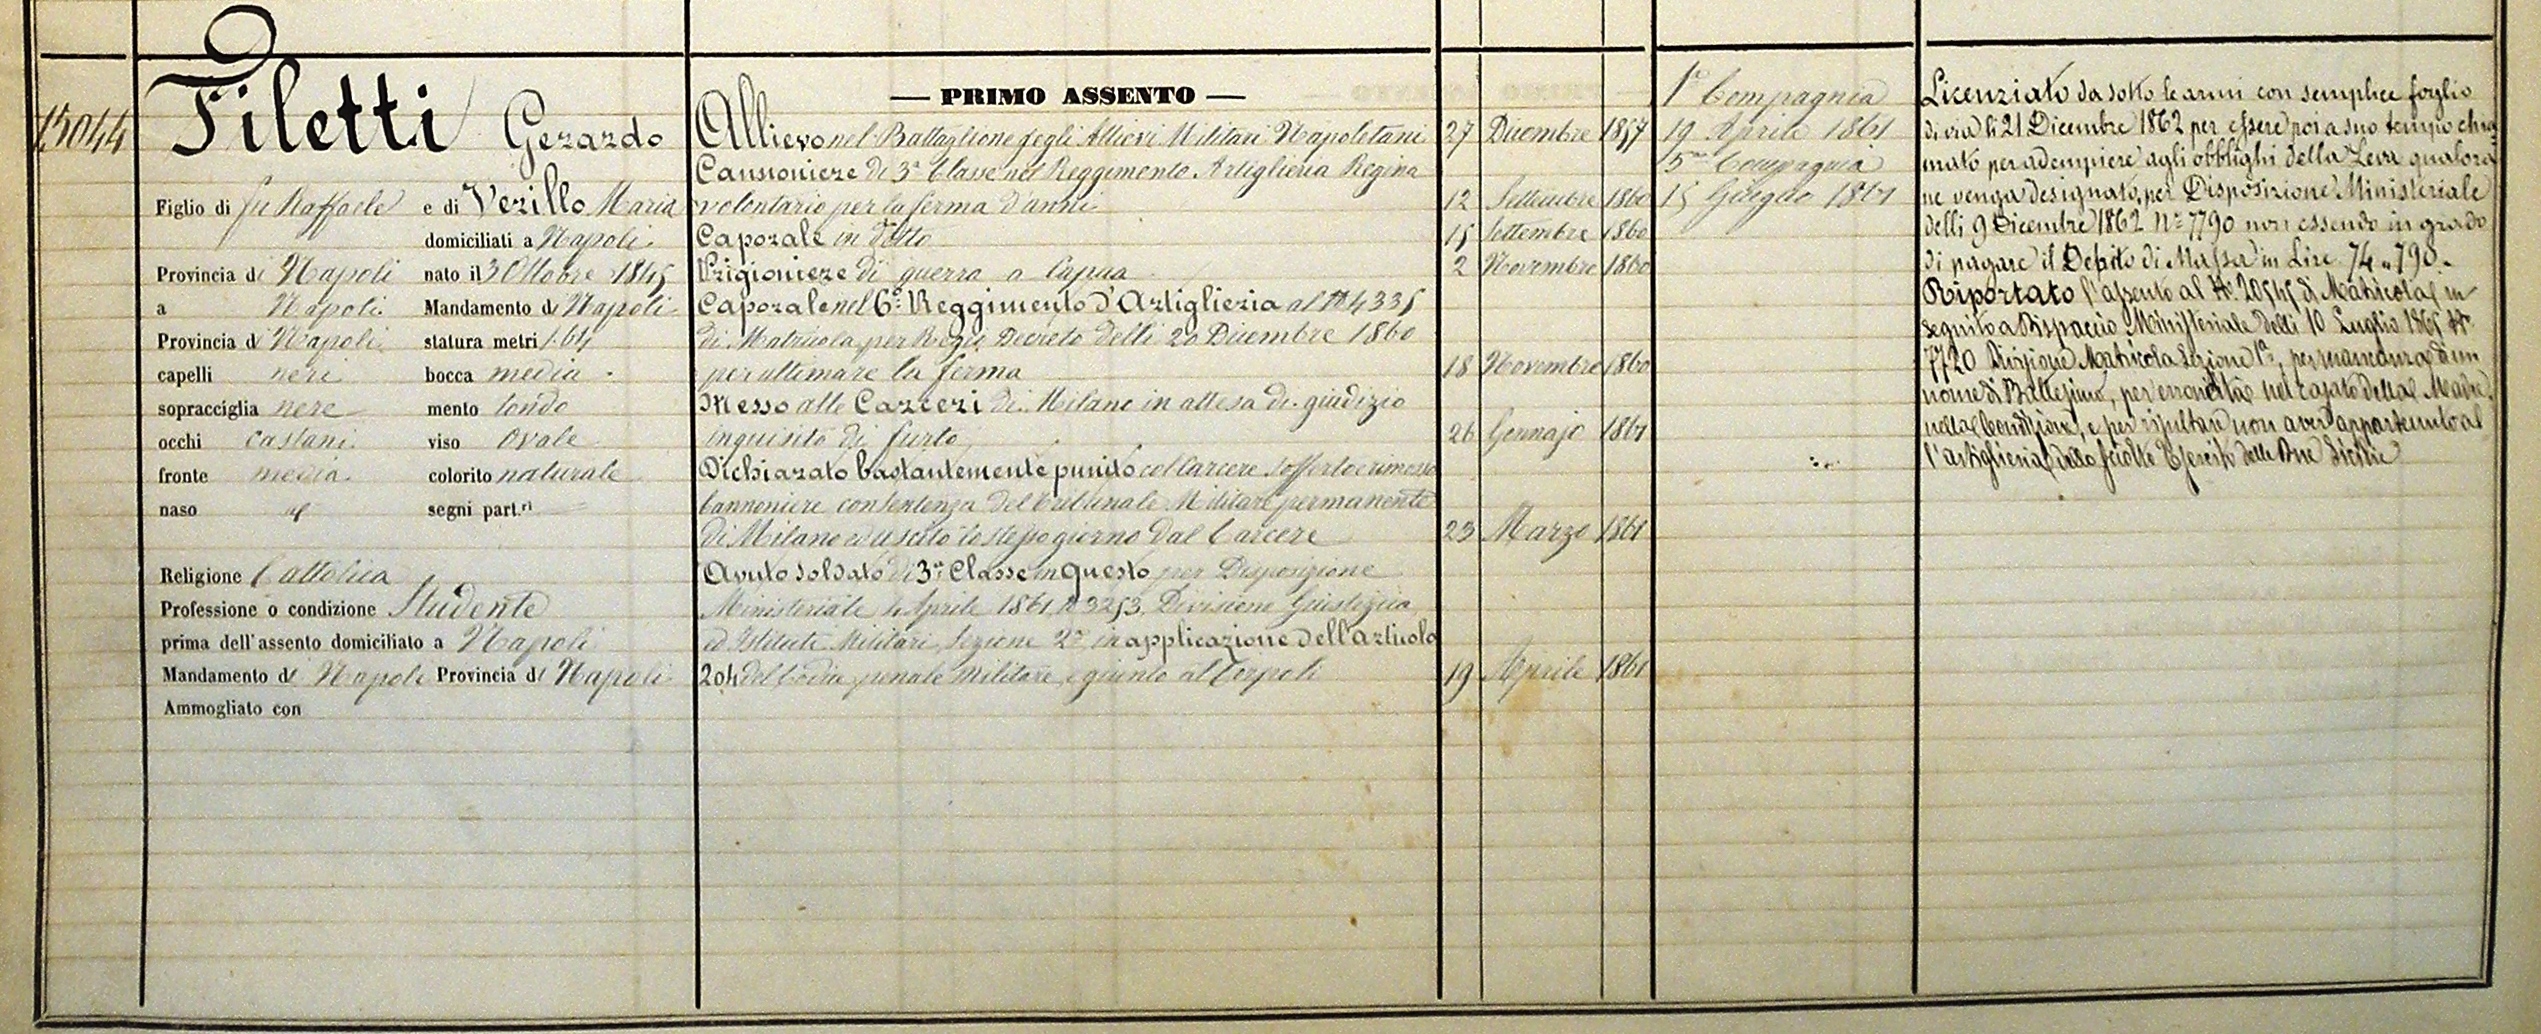 15044
Filetti Gerardo
Figlio di fu Raffaele e di Verillo Maria
domiciliati a Napoli
Provincia di Napoli nato il 3 Ottobre 1845
a Napoli Mandamento di Napoli
Provincia di Napoli statura metri 1.64
capelli neri bocca media
sopracciglia nere mento tondo
occhi castani viso ovale
fronte media colorito naturale
naso id segni part.ri
Religione Cattolica
Professione o condizione Studente
prima dell'assento domiciliato a Napoli
Mandamento di Napoli Provincia di Napoli
Ammogliato con
— PRIMO ASSENTO —
Allievo nel Battaglione degli Allievi Militari Napoletani 27 Dicembre 1857
Cannoniere di 3a Classe nel Reggimento Artiglieria Regina
volontario per la ferma d'anni 12 Settembre 1860
Caporale in detto 15 Settembre 1860
Prigioniere di guerra a Capua 2 Novembre 1860
Caporale nel 6o Reggimento d'Artiglieria al No 4335
di Matricola per Regio Decreto delli 20 Dicembre 1860
per ultimare la ferma 18 Novembre 1860
Messo alle Carceri di Milano in attesa di giudizio
inquisito di furto 26 Gennajo 1861
Dichiarato bastantemente punito col carcere sofferto e rimosso
Cannoniere con sentenza del Tribunale Militare permanente
di Milano ed uscito lo stesso giorno dal Carcere 23 Marzo 1861
Avuto soldato di 3a Classe in questo per Disposizione
Ministeriale 4 Aprile 1861 No 3253 Divisione Giustizia
ed Istituti Militari, Sezione 2a, in applicazione dell'articolo
204 del Codice penale Militare, e giunto al Corpo li 19 Aprile 1861
1a Compagnia
19 Aprile 1861
5a Compagnia
15 Giugno 1861
Licenziato da sotto le armi con semplice foglio
di via li 21 Dicembre 1862 per essere poi a suo tempio chia
mato per adempiere agli obblighi della Leva qualora
ne venga designato, per Disposizione Ministeriale
delli 9 Dicembre 1862 No 7790 non essendo in grado
di pagare il Debito di Massa in Lire 74,,790.
Riportato l'assento al No 20545 di Matricola in
seguito a Dispaccio Ministeriale delli 10 Luglio 1865 No
7720 Divisione Matricola Sezione 1a, per mancanza di un
nome di Battesimo, per erroneità nel casato della Madre,
nella Condizione, e per risultare non aver appartenuto al
l'artiglieria dello sciolto Esercito delle Due Sicilie